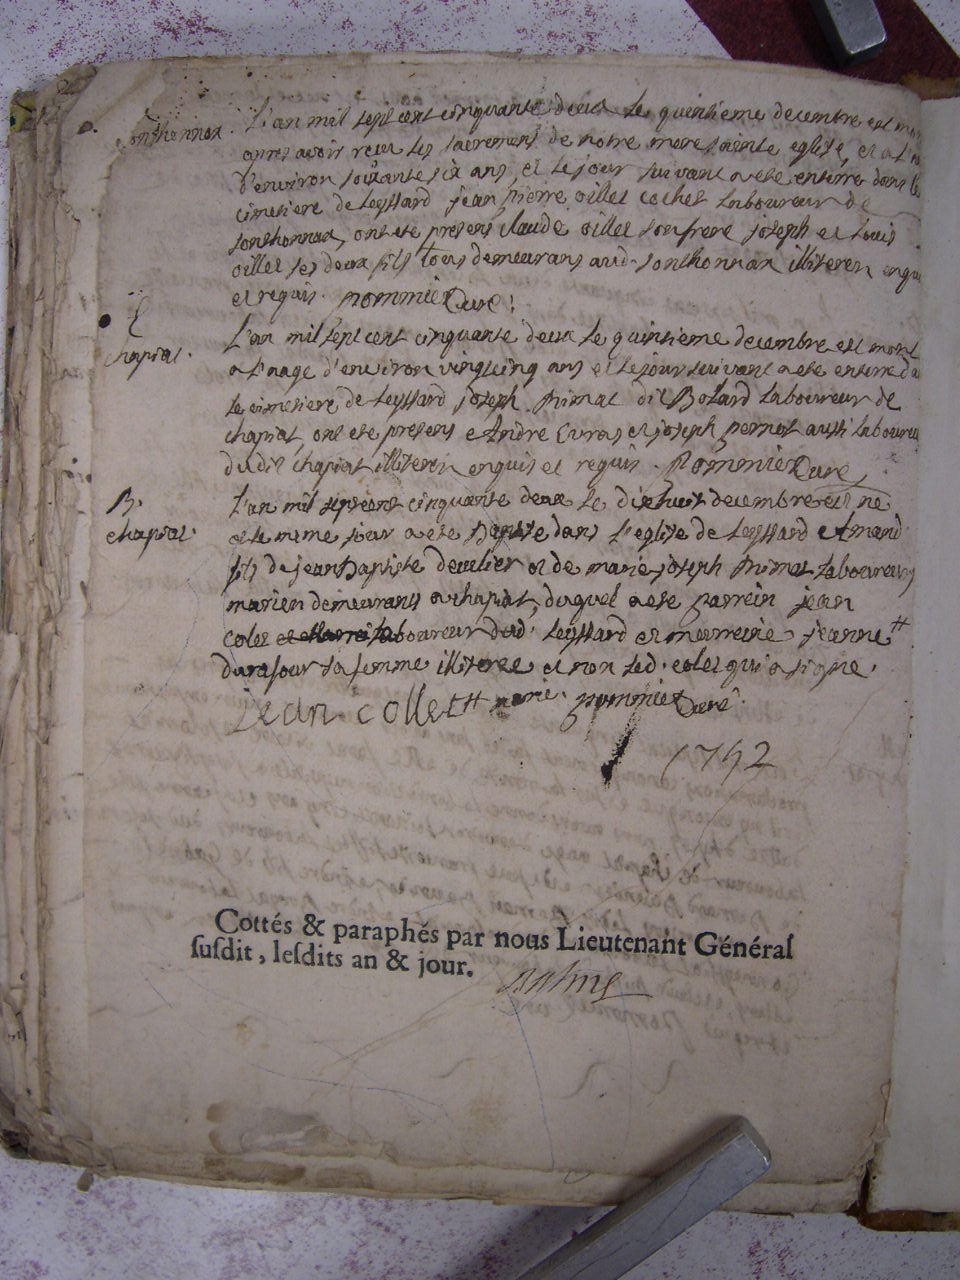 sonthonnax. L'an mil sept cent cinquante deux le quinsieme decembre est mo
apres avoir receu les sacremens de notre mere sainte eglise, et a l'a
d'environ soixante six ans, et le jour suivant a ete enterré dans le
cimetiere de leyssard jean pierre oillet cochet laboureur de
sonthonnax, ont ete presens claude oillet son frere joseph et louis
oillet ses deux fils tous demeurans aud. sonthonnax illiteres enqu
et requis. pommier Curé.
chapiat. L'an mil sept cent cinquante deux le quinsieme decembre est mort
a l'aage d'environ vingt cinq ans et le jour suivant a ete enterre da
le cimetiere de leyssard joseph nimat dit Bolard laboureur de
chapiat, ont ete presens Andre Curos et joseph pernot aussi laboureu
dudit chapiat illiteres enquis et requis. pommier Curé
B. L'an mil sept cent cinquante deux le dixhuit decembre est ne
chapiat. et le meme jour a ete Baptise dans l'eglise de leyssard Amand
fils de jean Baptiste decelier et de marie joseph nimat laboureurs
mariez demeurants a chapiat, duquel a ete parrein jean
colet laboureur dud. leyssard et marreine jeanne ++
durafour sa femme illiteree et non led. colet qui a signe.
jean collet ++ marie. pommier Curé.
1752
Cottés & paraphés par nous Lieutenant Général
susdit, lesdits an & jour.